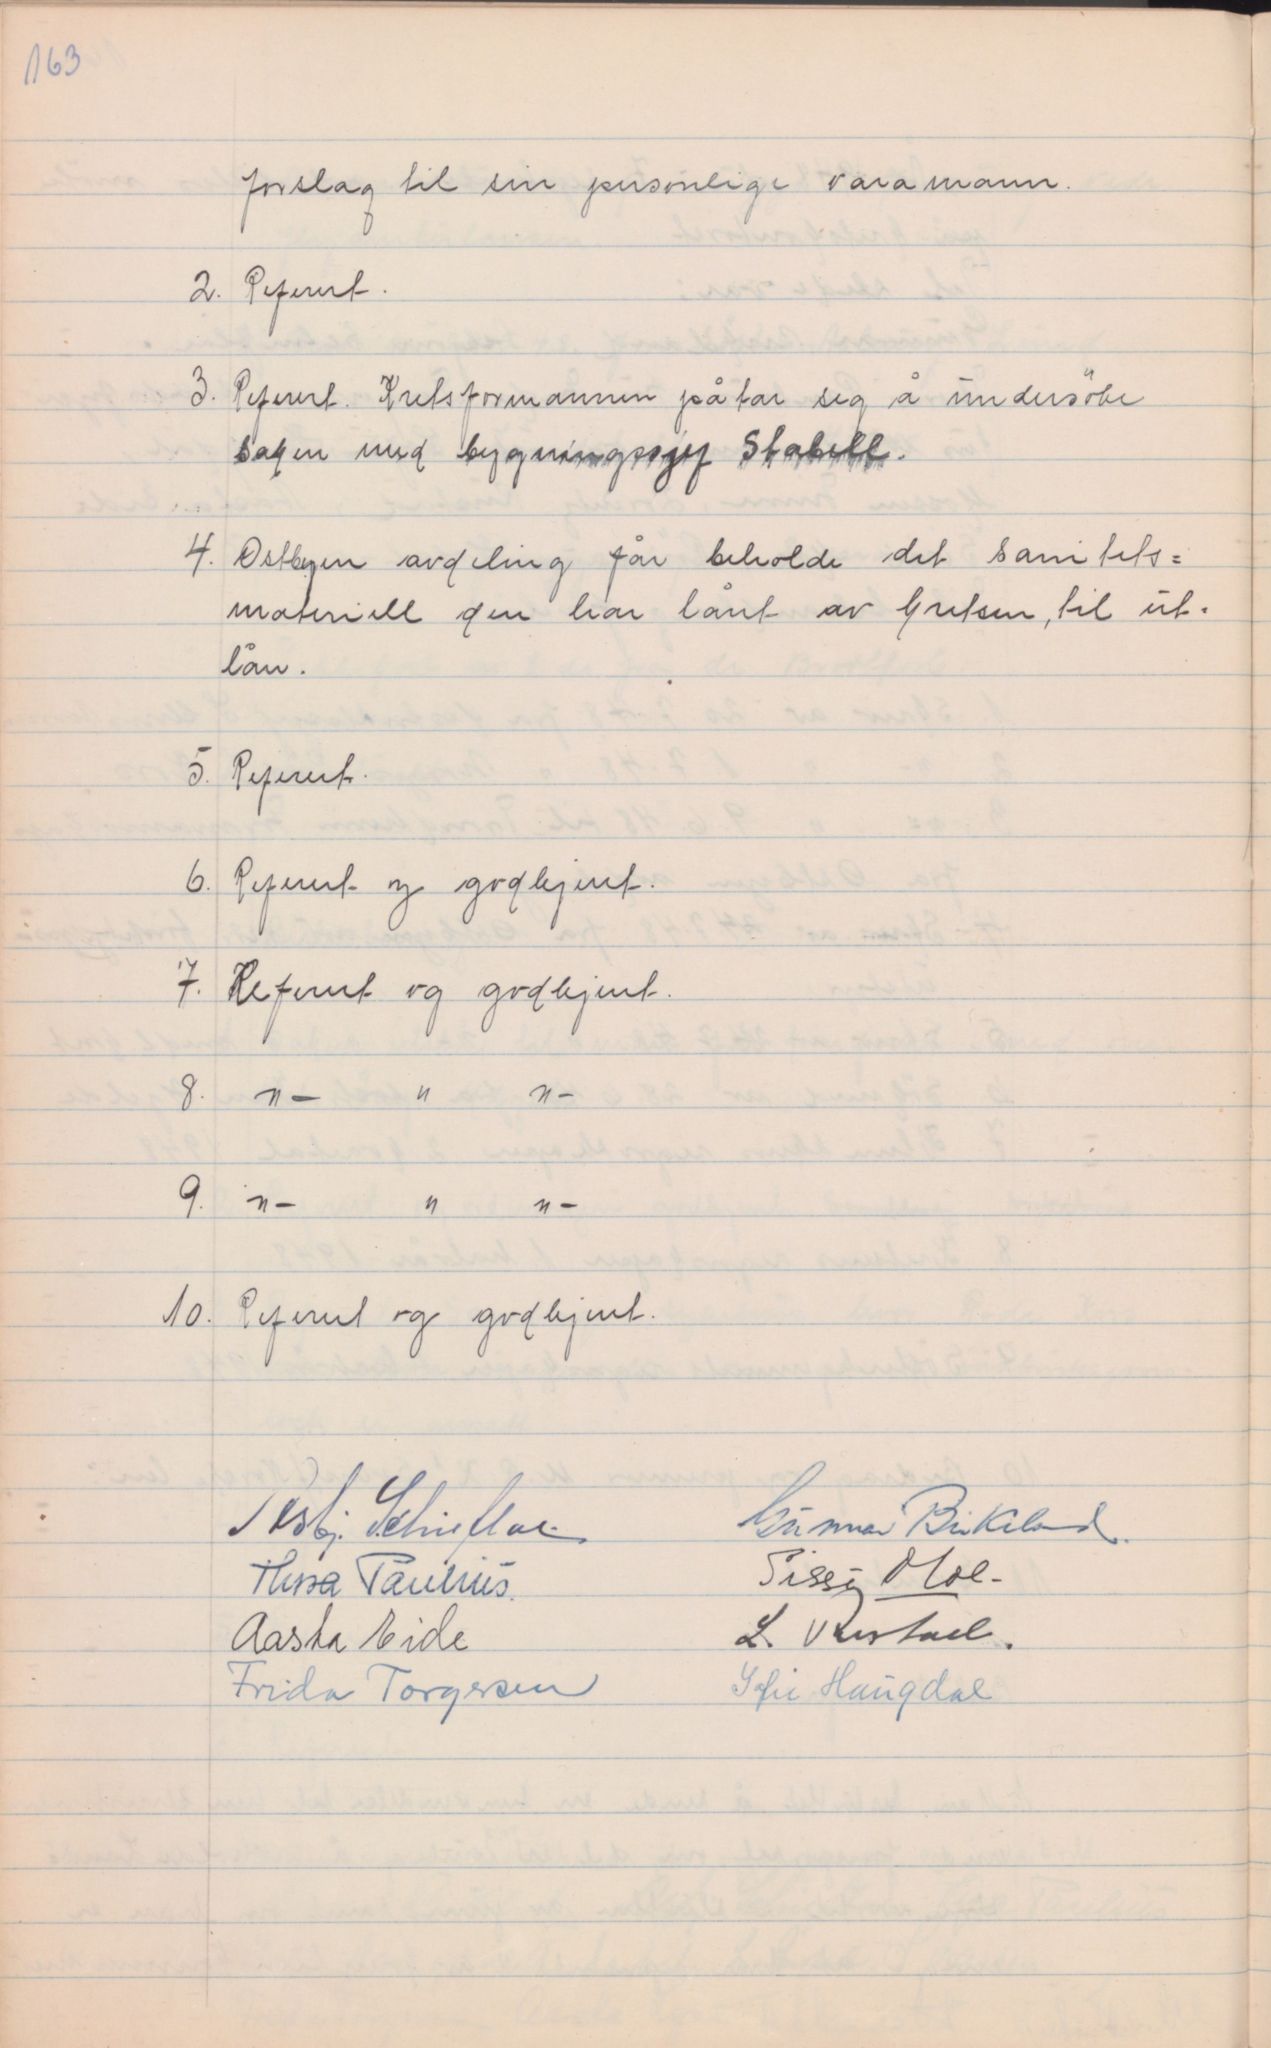 163
forslag til sin personlige varamann.
2. Referert.
3. Referert. Kretsformannen påtar seg å undersöke
saken med bygningssjef Stabell.
4. Östbyen avdeling får beholde det sanitets=
materiell den har lånt av Kretsen, til ut-
lån.
5. Referert.
6. Referert og godkjent.
7. Referert og godkjent.
8. "- " "-
9. "- " "-
10. Referert og godkjent.
Gunnar Birkeland.
Paulius. Sissy Moe-
Aasta Eide L.
Frida Torgersen Sofie Haugdal